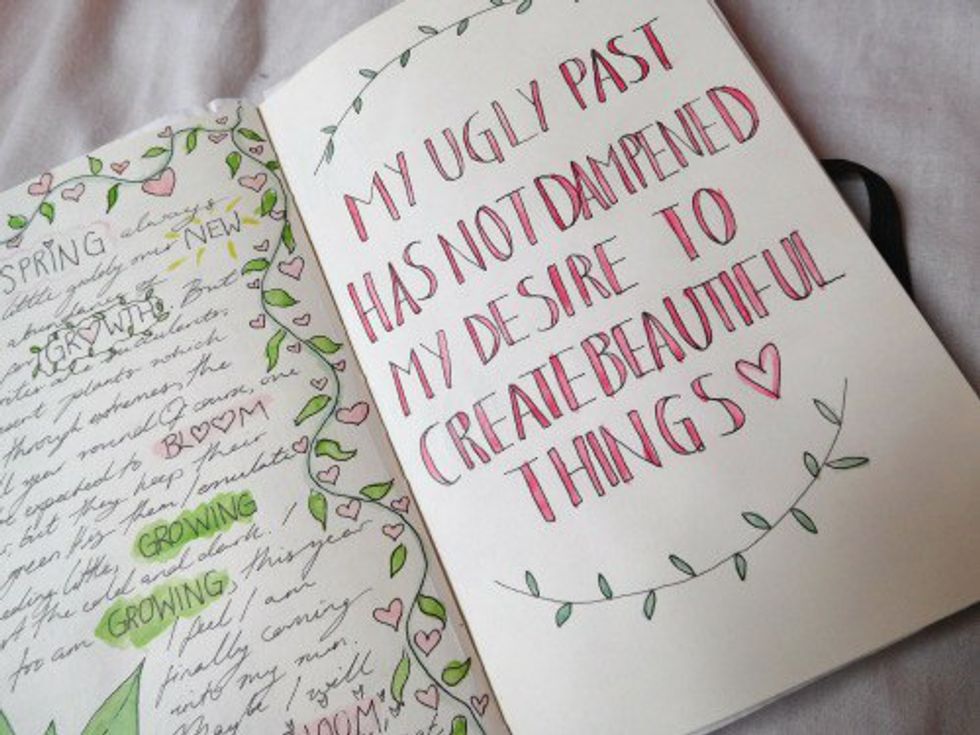 SPRING always
little godly NEW
abundance of
GROWTH. But
succulents,
plants which
through extremes, the
year round. Of course, one
expected to BLOOM
, but they keep their
green. By them, I emulate
little, GROWING
the cold and dark. I
for am GROWING, this year
I feel I am
finally coming
into my own.
Maybe I will
BLOOM,
MY UGLY PAST
HAS NOT DAMPENED
MY DESIRE TO
CREATE BEAUTIFUL
THINGS